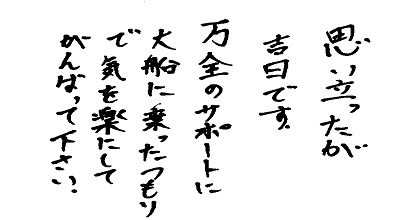 思い立ったが
吉日です。
万全のサポートに
大船に乗ったつもり
で気を楽にして
がんばって下さい。